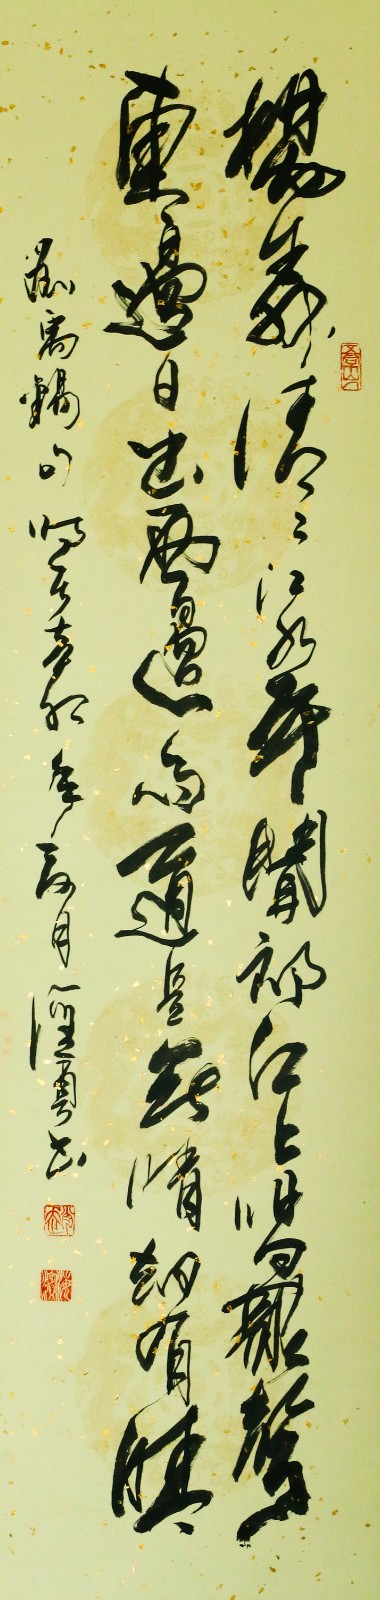 楊柳青〻江水平聞郎江上唱歌聲
東邊日出西邊雨道是無晴卻有晴
劉禹錫句 時在辛卯年月 勇書